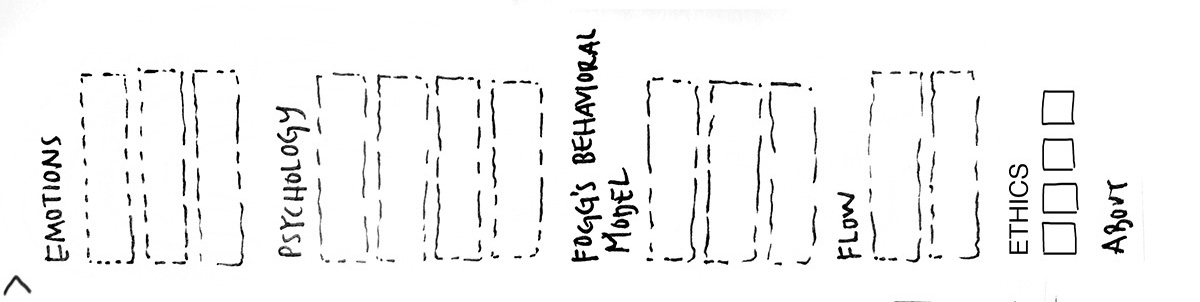 EMOTIONS
PSYCHOLOGY
FOGG'S BEHAVIORAL
MODEL
FLOW
ETHICS
ABOUT